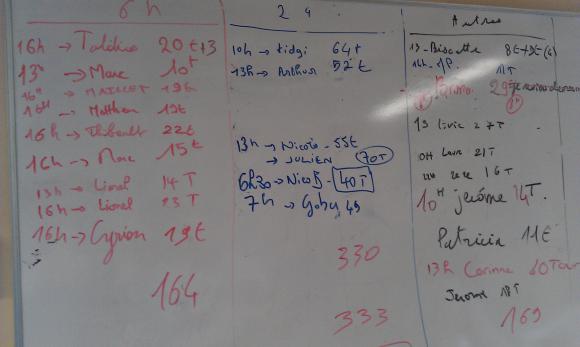 6h
16h → 20t+3
13h → Marc 10t
16h → MAILLET 19t
16h → Matthieu 12t
16h → Thibault 22t
16h → Marc 15t
13h → Lionel 14T
16h → Lionel 23T
16h → Cyprien 19t
164
24
10h → Kidgi 64t
13h → Arthur 52t
13h → Nicolo - 55t
→ JULIEN 70T
6h30 → Nico B - 40T
7h → Gaby 49
330
333
Autres
13 - Biscotte 8t+9t (6)
11T
29t
13 Livie 27T
OH Laure 21T
16T
10H jerôme 14T.
Patricia 11t
13h Corinne 10Tour
Jerome 18T
169